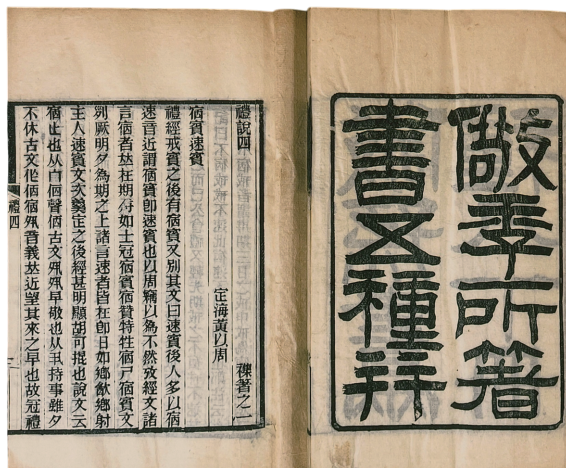 儆季所箸
書五種幷
禮說四
定海黃以周 褋著之一
宿賓速賓
禮經戒賓之後有宿賓又別其文曰速賓後人多以宿
速音近謂宿賓卽速賓也以周竊以為不然攷經文諸
言宿者竝在期前如士冠宿賓宿贊特牲宿尸宿賓文
列厥明夕為期之上諸言速者皆在卽日如鄉飲鄉射
主人速賓文次羹定之後經甚明顯胡可掍也說文云
宿止也从宀㑉聲㑉古文夙夙早敬也从丮持事雖夕
不休古文作㑉宿夙音義竝近望其來之早也故冠禮
禮四